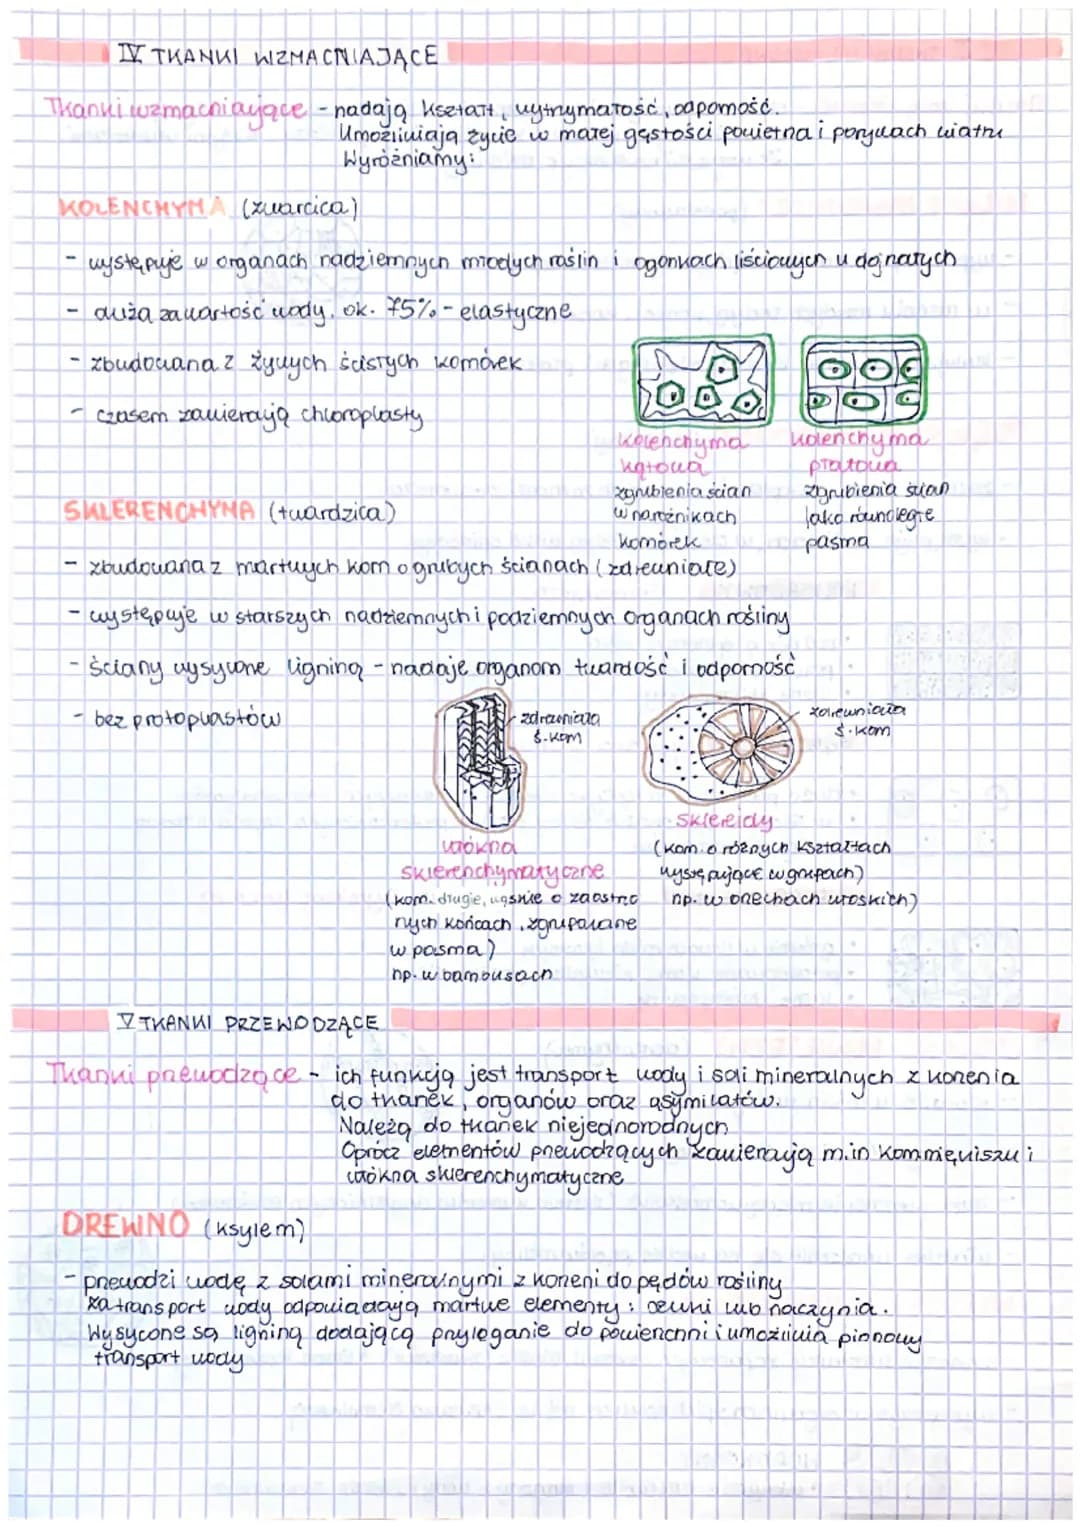 IV TKANKI WZMACNIAJĄCE
Tkanki wzmacniające - nadają kształt, wytrzymałość, odporność.
Umożliwiają życie w małej gęstości powietrza i porywach wiatru
Wyróżniamy:
KOLENCHYMA (zwarcica)
- występuje w organach nadziemnych młodych roślin i ogonkach liściowych u dojrzałych
- duża zawartość wody, ok. 75% - elastyczne
- zbudowana z żywych ścisłych komórek
- czasem zawierają chloroplasty
kolenchyma
kątowa
zgrubienia ścian
w narożnikach
komórek
kolenchyma
płatowa
zgrubienia ścian
jako równoległe
pasma
SKLERENCHYMA (twardzica)
- zbudowana z martwych kom o grubych ścianach (zdrewniałe)
- występuje w starszych nadziemnych i podziemnych organach rośliny
- ściany wysycone ligniną - nadaje organom twardość i odporność
- bez protoplastów
zdrewniała
ś. kom
zdrewniała
ś. kom
włókna
sklerenchymatyczne
(kom. długie, wąskie o zaostrzo
nych końcach, zgrupowane
w pasma)
np. w bambusach
Sklereidy
(kom. o różnych kształtach
występujące w grupach)
np. w orzechach włoskich)
V TKANKI PRZEWODZĄCE
Tkanki przewodzące - ich funkcją jest transport wody i soli mineralnych z korzenia
do tkanek, organów oraz asymilatów.
Należą do tkanek niejednorodnych
Oprócz elementów przewodzących zawierają m.in kom miękiszu i
włókna sklerenchymatyczne
DREWNO (ksylem)
- przewodzi wodę z solami mineralnymi z korzeni do pędów rośliny
za transport wody odpowiadają martwe elementy: cewki lub naczynia.
Wysycone są ligniną dodającą przyleganie do powierzchni i umożliwia pionowy
transport wody